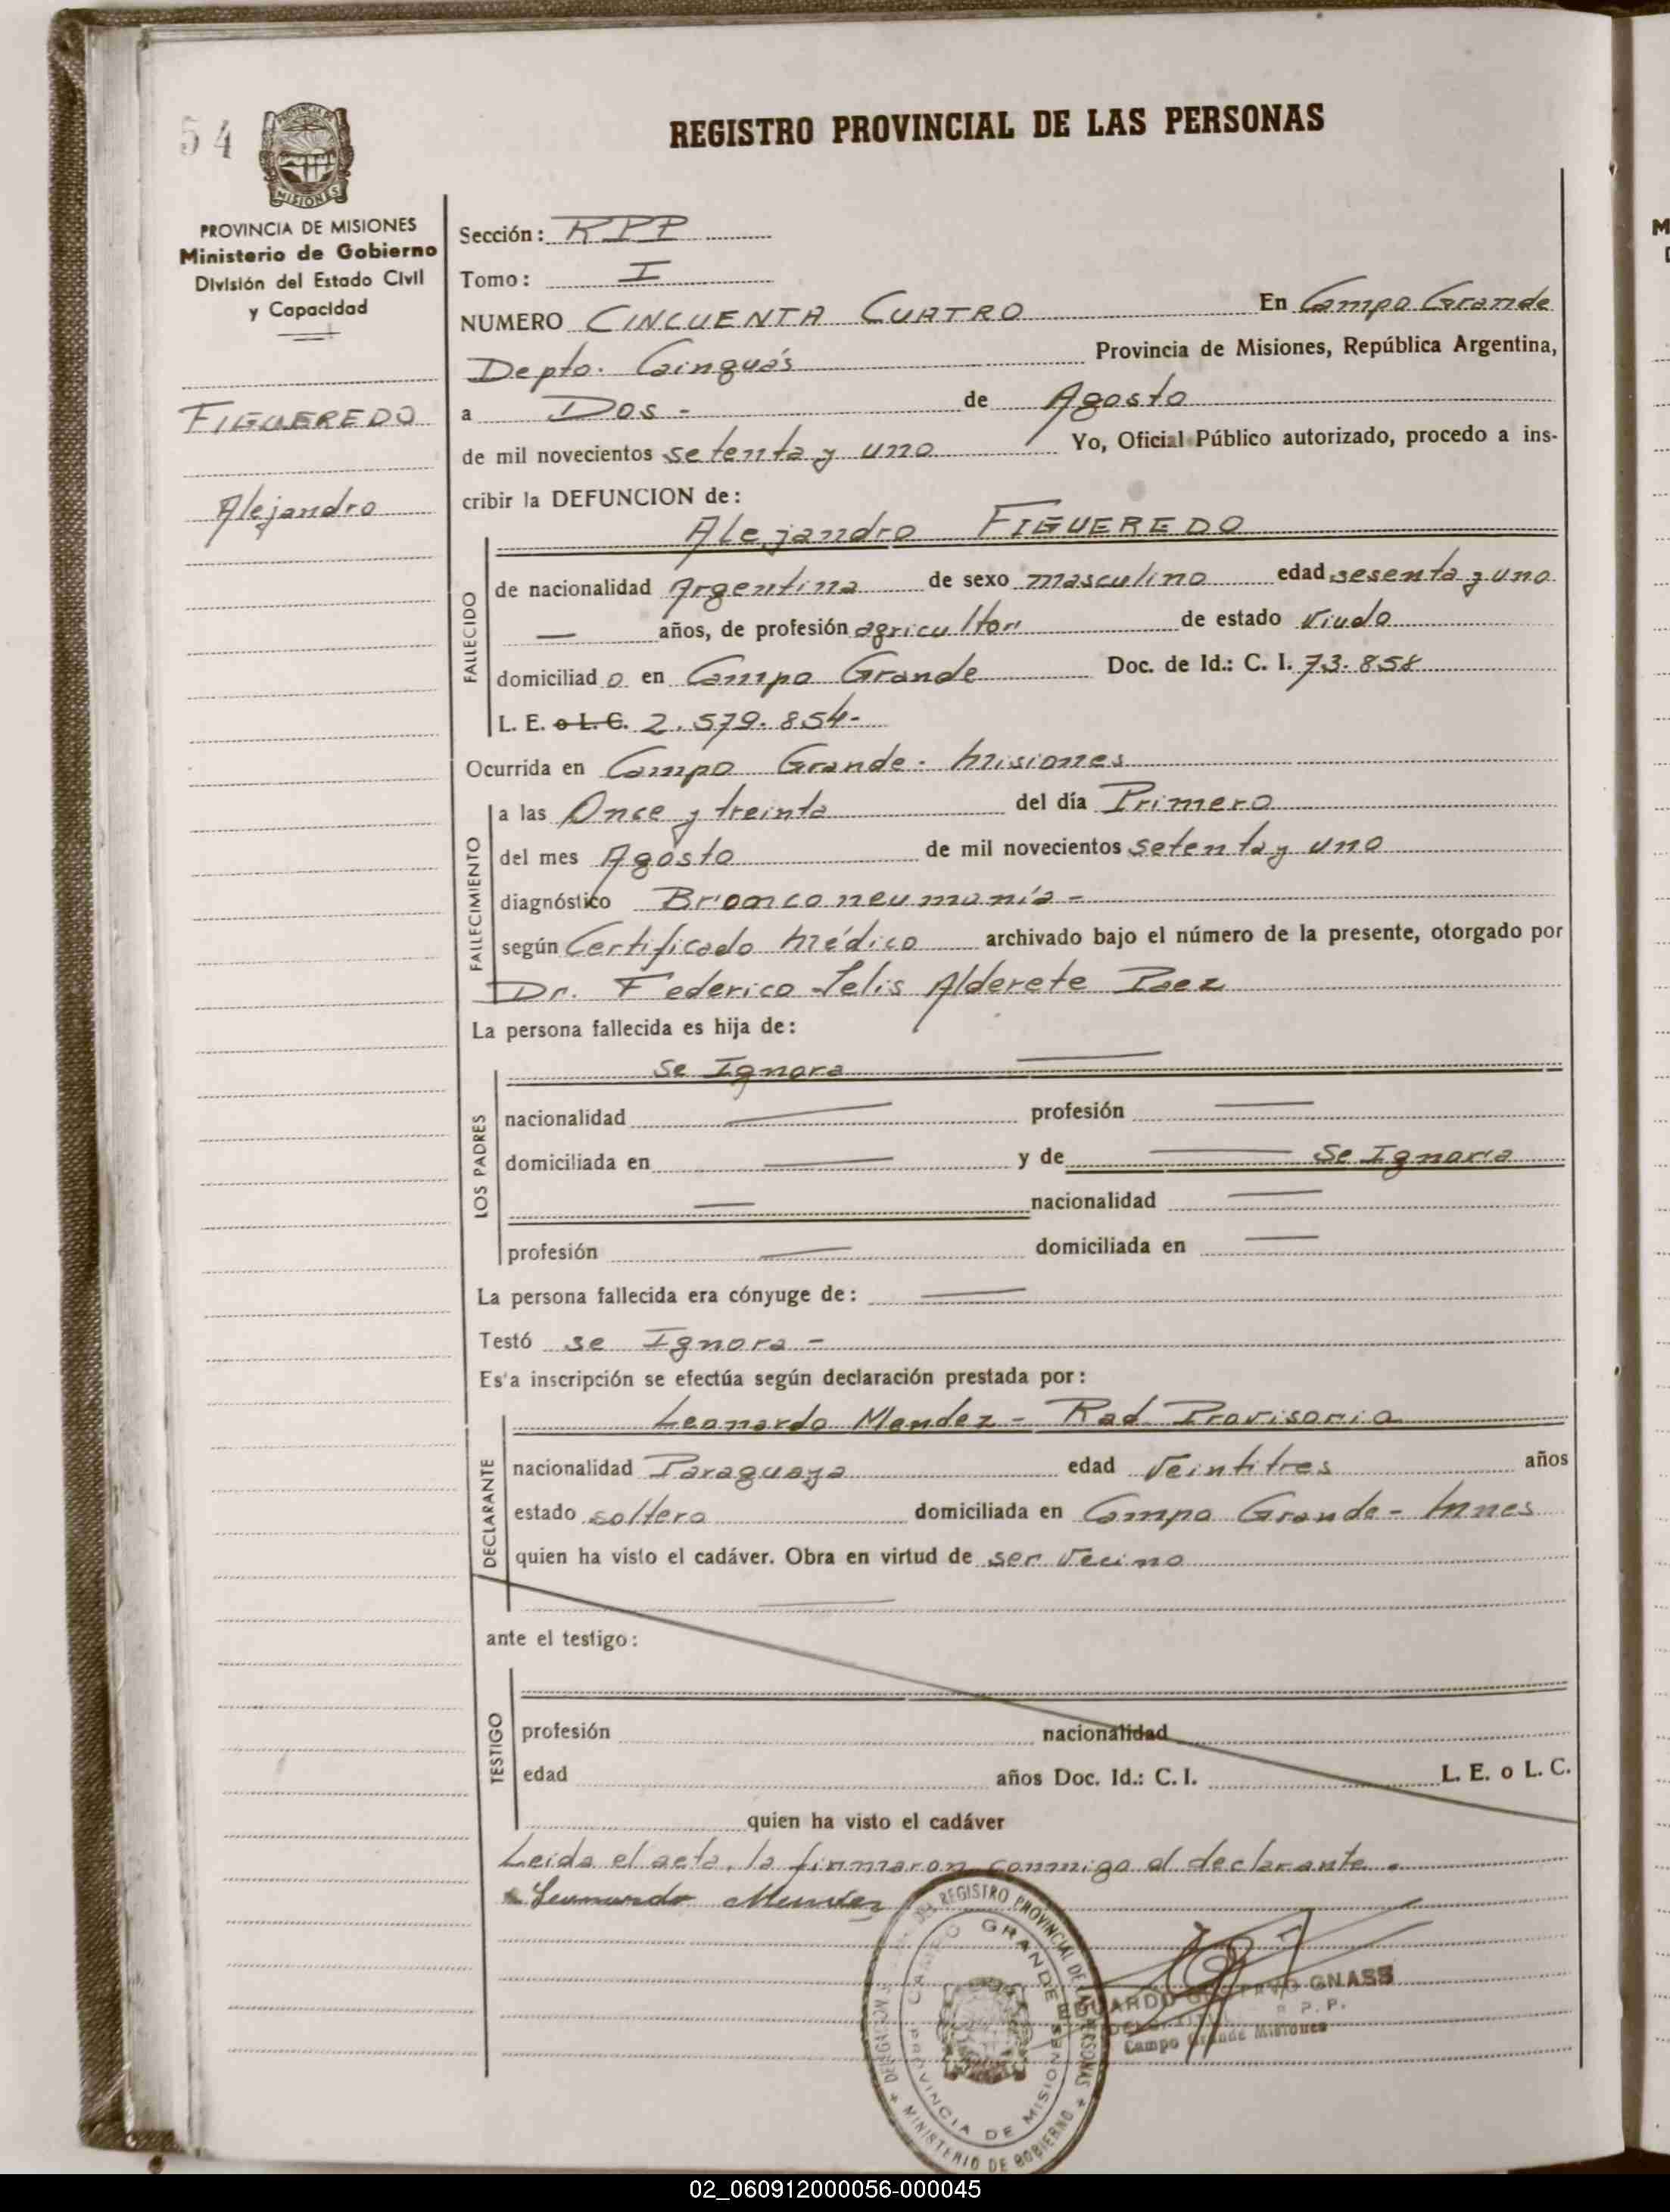 54
PROVINCIA DE MISIONES
Ministerio de Gobierno
División del Estado Civil
y Capacidad
FIGUEREDO
Alejandro
REGISTRO PROVINCIAL DE LAS PERSONAS
Sección: RPP
Tomo: I
NUMERO CINCUENTA CUATRO En Campo Grande
Depto. Cainguás Provincia de Misiones, República Argentina,
a Dos - de Agosto
de mil novecientos setenta y uno Yo, Oficial Público autorizado, procedo a ins-
cribir la DEFUNCION de:
Alejandro FIGUEREDO
FALLECIDO
de nacionalidad Argentina de sexo masculino edad sesenta y uno
— años, de profesión agricultor de estado Viudo
domiciliad o en Campo Grande Doc. de Id.: C. I. 73.858
L. E. o L. C. 2.579.854-
Ocurrida en Campo Grande - Misiones
FALLECIMIENTO
a las Once y treinta del día Primero
del mes Agosto de mil novecientos setenta y uno
diagnóstico Bronconeumonía -
según Certificado Médico archivado bajo el número de la presente, otorgado por
Dr. Federico Lelis Alderete Paez
La persona fallecida es hija de:
Se Ignora —
LOS PADRES
nacionalidad — profesión —
domiciliada en — y de — Se Ignora
— nacionalidad —
profesión — domiciliada en —
La persona fallecida era cónyuge de: —
Testó se Ignora -
Es'a inscripción se efectúa según declaración prestada por:
Leonardo Mendez - Rad. Provisoria
DECLARANTE
nacionalidad Paraguaya edad Veintitres años
estado soltero domiciliada en Campo Grande - Mnes
quien ha visto el cadáver. Obra en virtud de ser Vecino
—
ante el testigo:
TESTIGO
profesión nacionalidad
edad años Doc. Id.: C. I. L. E. o L. C.
quien ha visto el cadáver
Leida el acta, la firmaron conmigo el declarante.
Leonardo Mendez
DELEGACION DEL REGISTRO PROVINCIAL DE LAS PERSONAS + MINISTERIO DE GOBIERNO +
CAMPO GRANDE PROVINCIA DE MISIONES
EDUARDO GUSTAVO GNASS
R. P. P.
Campo Grande Misiones
02_060912000056-000045